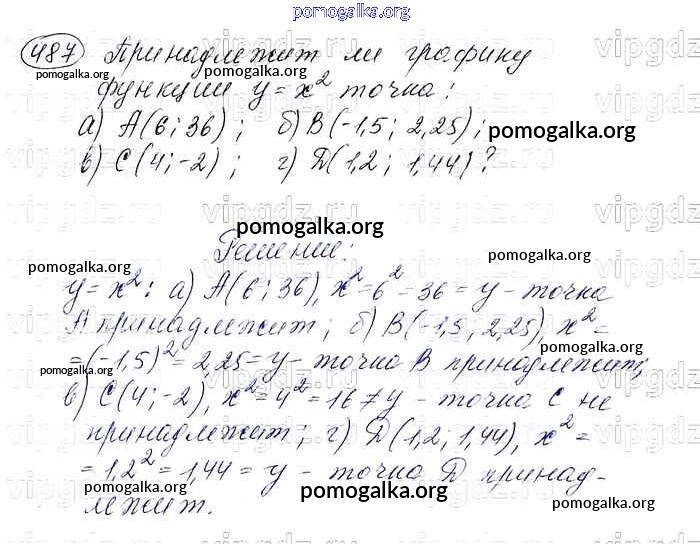 pomogalka.org
487 Принадлежит ли графику
pomogalka.org
функции y = x² точка:
а) А(6; 36); б) В(-1,5; 2,25); pomogalka.org
в) С(4; -2); г) Д(1,2; 1,44)?
pomogalka.org pomogalka.org
vipgdz.ru vipgdz.ru vipgdz
pomogalka.org
Решение:
pomogalka.org pomogalka.org
y = x²: а) А(6; 36), x² = 6² = 36 = y - точка
А принадлежит; б) В(-1,5; 2,25), x² =
pomogalka.org
= (-1,5)² = 2,25 = y - точка В принадлежит;
pomogalka.org
в) С(4; -2), x² = 4² = 16 ≠ y - точка С не
принадлежит; г) Д(1,2; 1,44), x² =
= 1,2² = 1,44 = y - точка Д принад-
pomogalka.org pomogalka.org
лежит. pomogalka.org